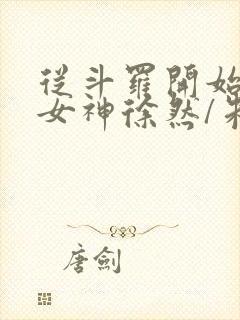 從斗羅開始
女神徐然/朱
唐劍